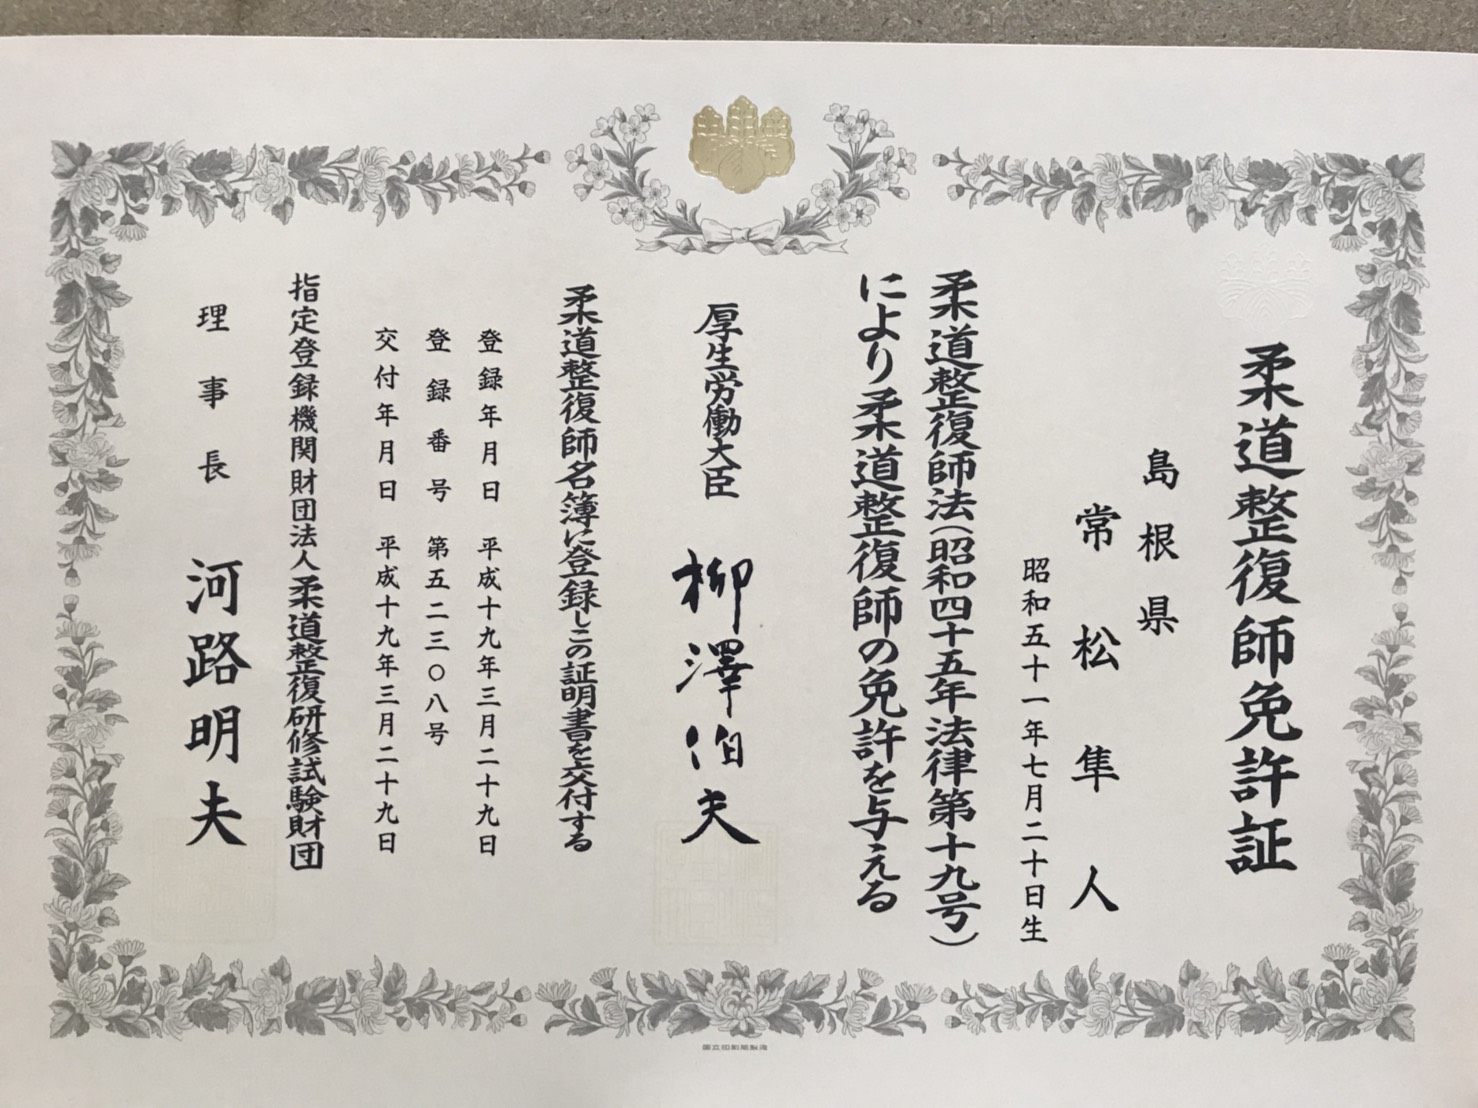 柔道整復師免許証
島根県
常松隼人
昭和五十一年七月二十日生
柔道整復師法(昭和四十五年法律第十九号)
により柔道整復師の免許を与える
厚生労働大臣 柳澤伯夫
柔道整復師名簿に登録しこの証明書を交付する
登録年月日 平成十九年三月二十九日
登録番号 第五二三〇八号
交付年月日 平成十九年三月二十九日
指定登録機関財団法人柔道整復研修試験財団
理事長 河路明夫
国立印刷局製造